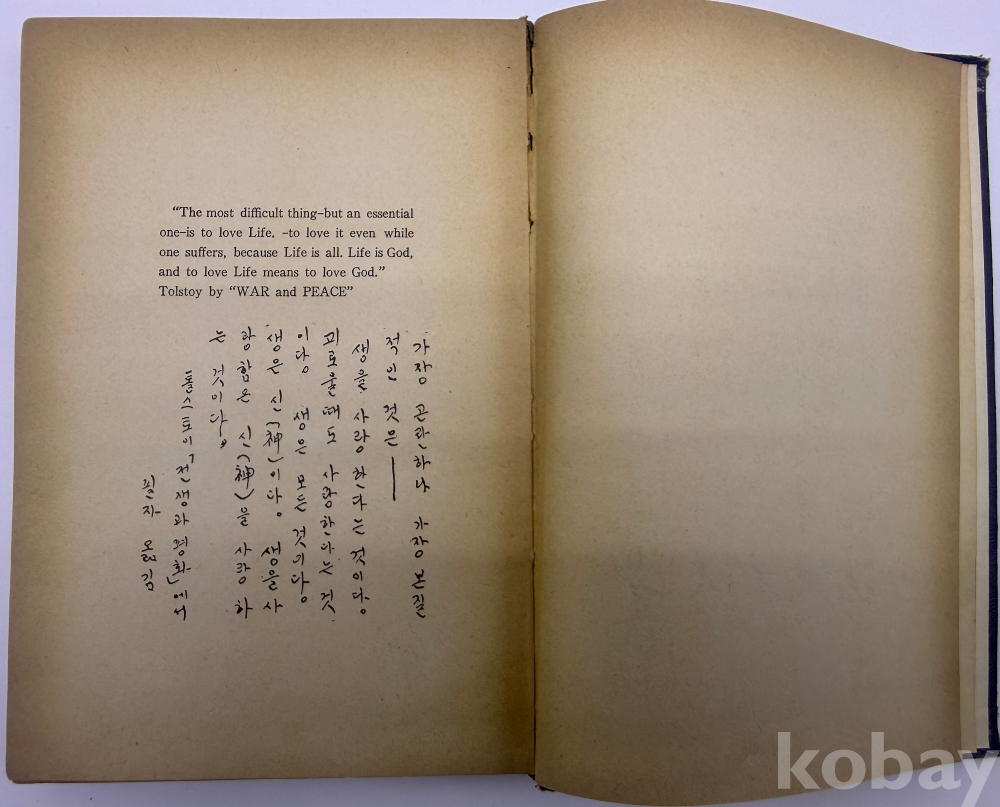 “The most difficult thing-but an essential
one-is to love Life. -to love it even while
one suffers, because Life is all. Life is God,
and to love Life means to love God.”
Tolstoy by “WAR and PEACE”
가장 곤란하나 가장 본질
적인 것은——
생을 사랑한다는 것이다。
괴로울때도 사랑한다는 것
이다。 생은 모든 것이다。
생은 신(神)이다。 생을 사
랑함은 신(神)을 사랑하
는 것이다。”
톨스토이「전쟁과평화」에서
필자 옮김
kobay